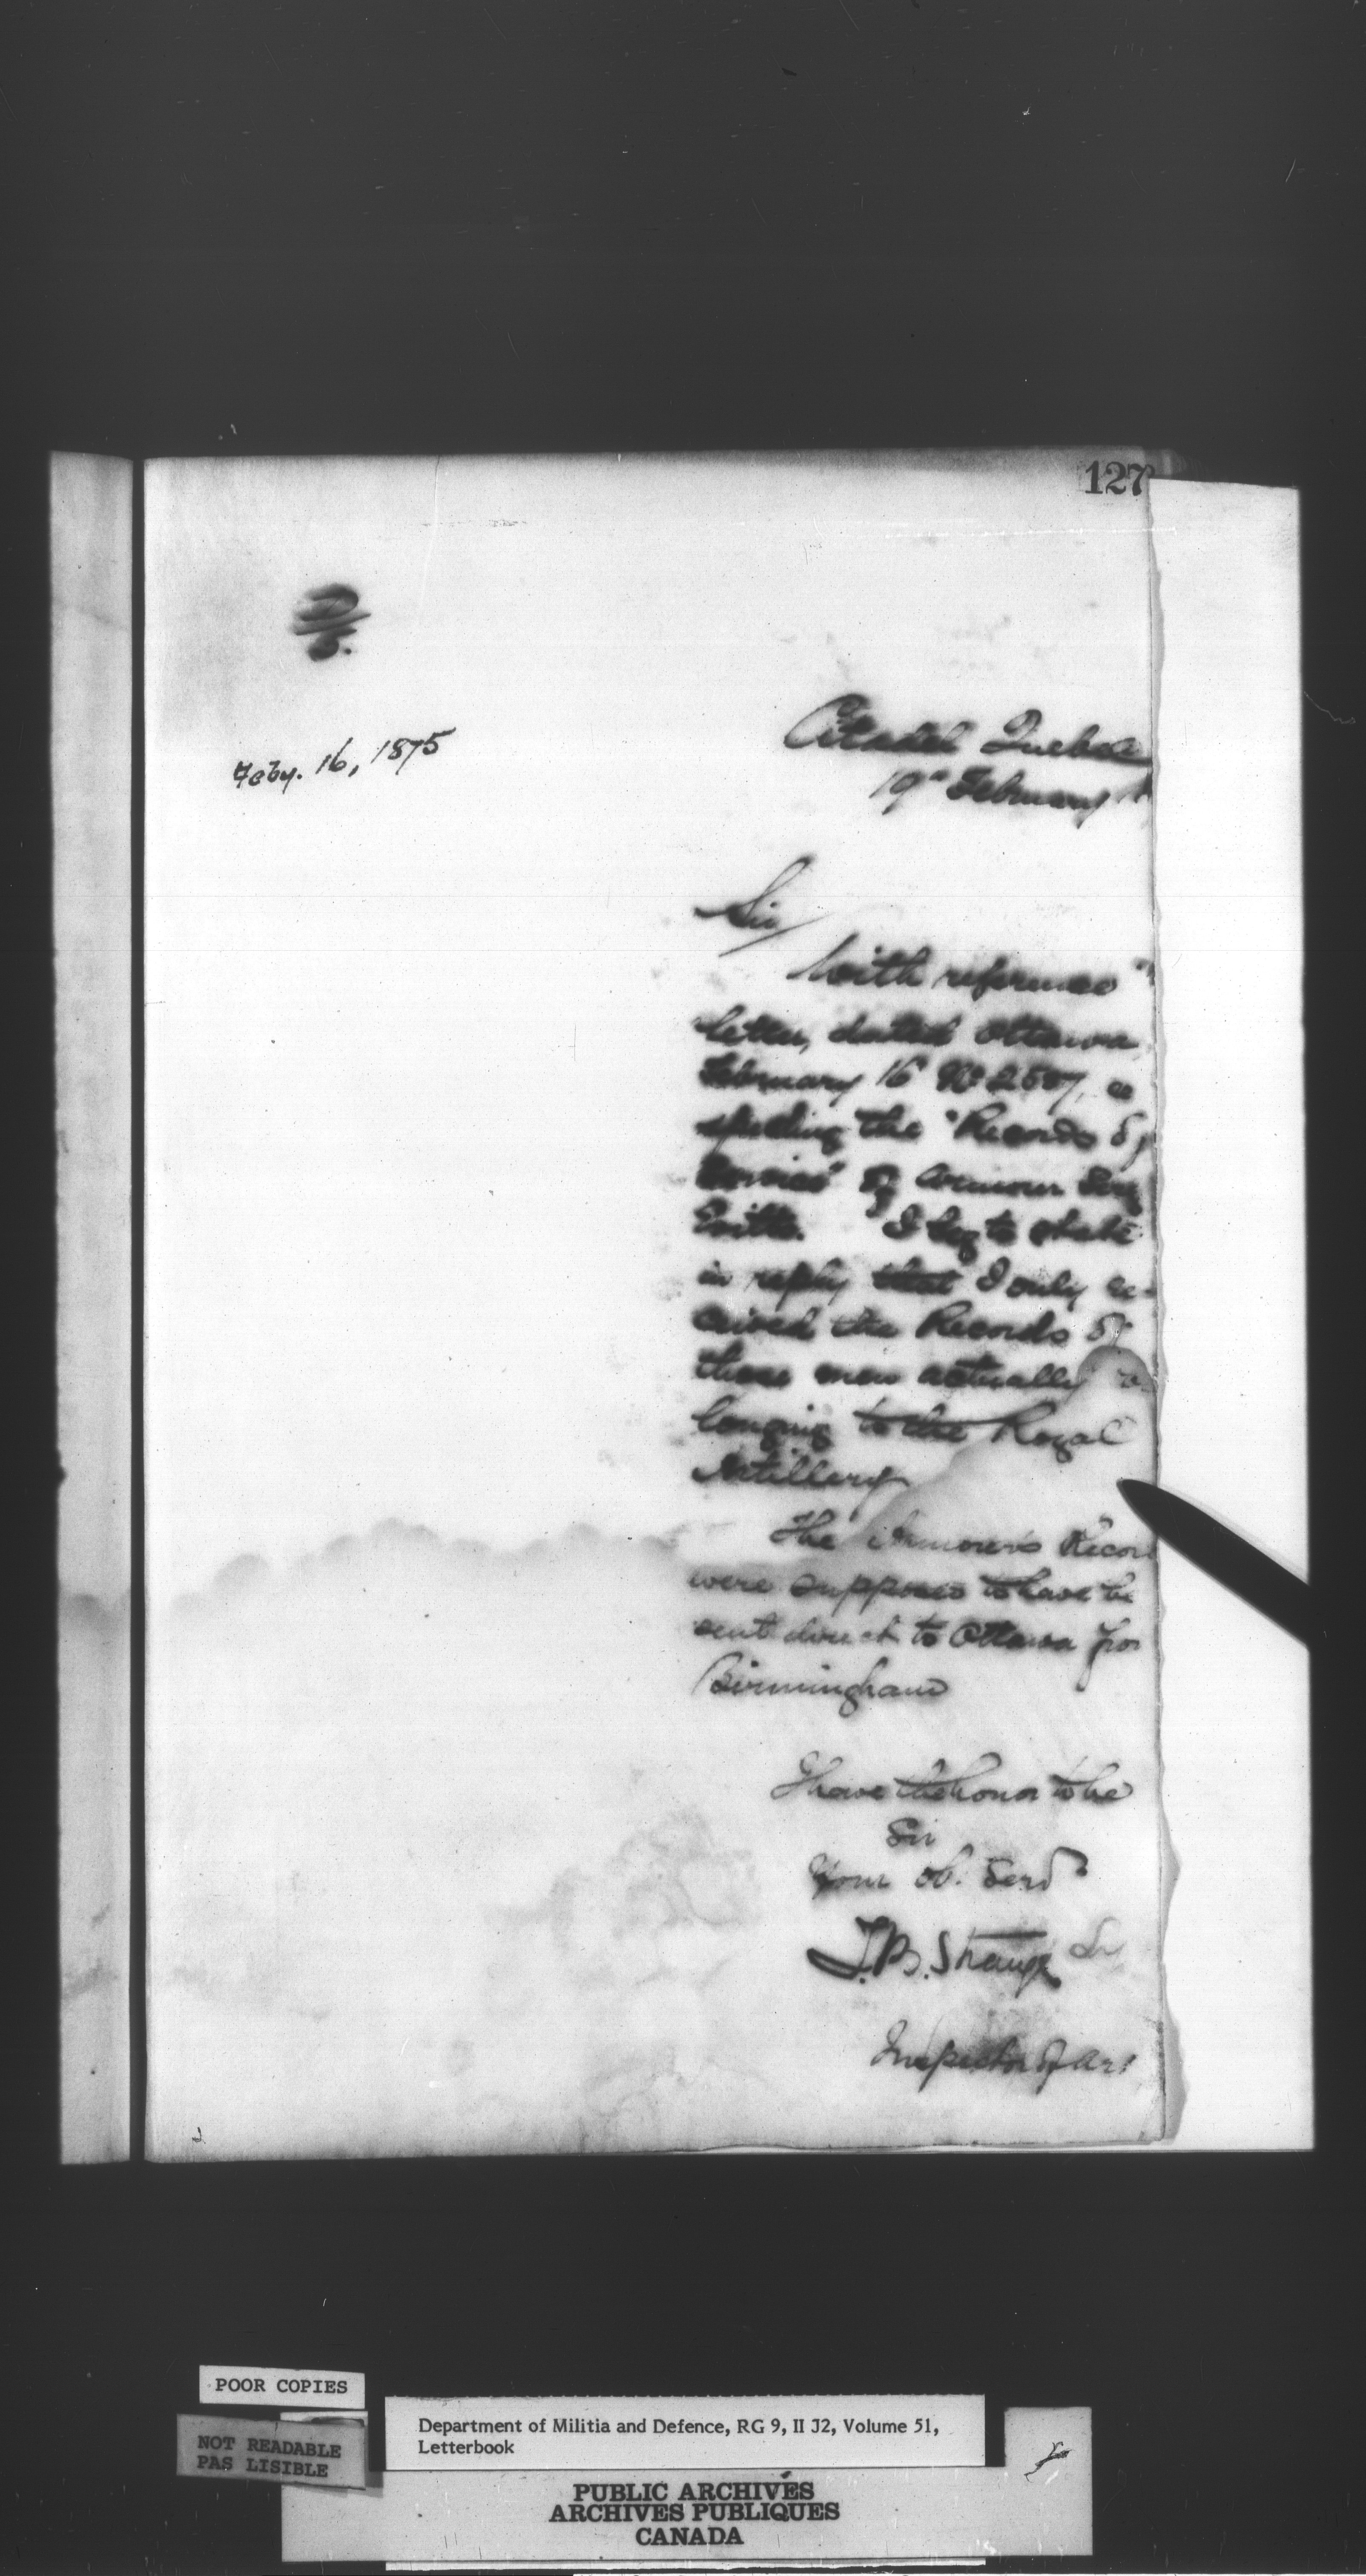 127
Feby. 16, 1875
Citadel Quebec
19th February
Sir
With reference
letter, dated Ottawa
February 16 No 2507, re
specting the "Records of
Service" of Armourer Serg
Smith. I beg to state
in reply that I only re-
ceived the Records of
those men actually
longing to the Royal
Artillery
The Armourers Recor
were supposed to have be
sent direct to Ottawa from
Birmingham
I have the honor to be
Sir
Your ob. Servt
T.B. Strange
Inspector of Art
POOR COPIES
NOT READABLE
PAS LISIBLE
Department of Militia and Defence, RG 9, II J2, Volume 51,
Letterbook
PUBLIC ARCHIVES
ARCHIVES PUBLIQUES
CANADA